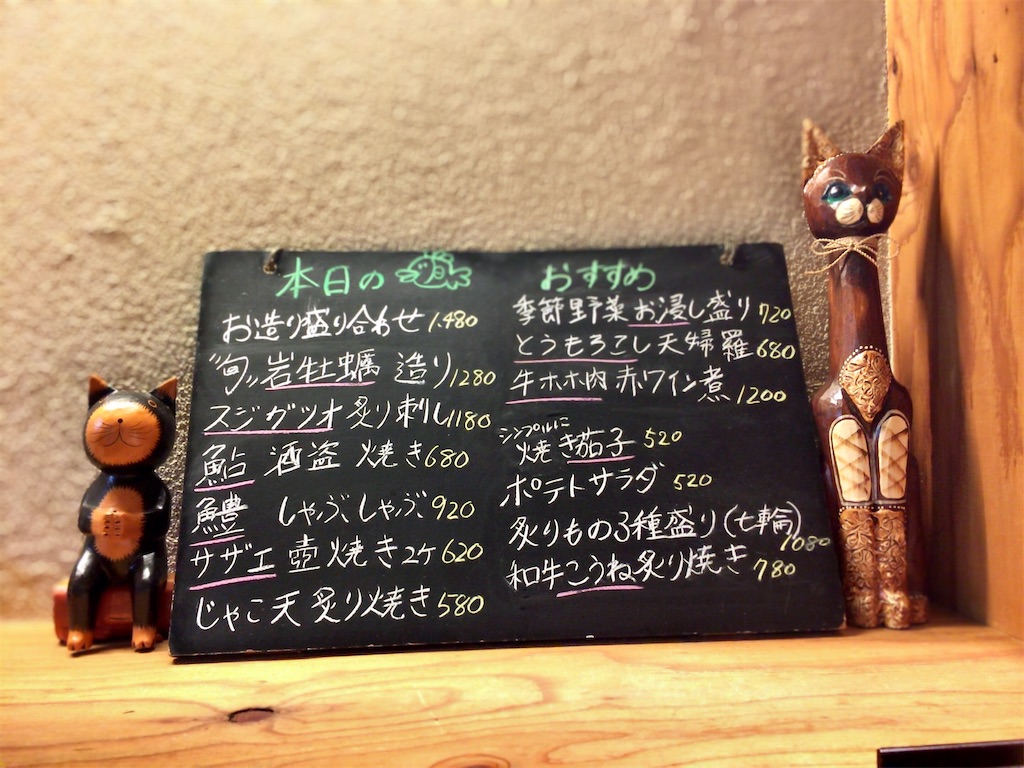 本日の おすすめ
お造り盛り合わせ 1.480
"旬" 岩牡蠣 造り 1280
スジガツオ 炙り刺し 1180
鮎 酒盗 焼き 680
鱧 しゃぶしゃぶ 920
サザエ 壺焼き 2ケ 620
じゃこ天 炙り焼き 580
季節野菜 お浸し盛り 720
とうもろこし天婦羅 680
牛ホホ肉 赤ワイン煮 1200
シンプルに
焼き茄子 520
ポテトサラダ 520
炙りもの3種盛り(七輪) 1080
和牛こうね炙り焼き 780